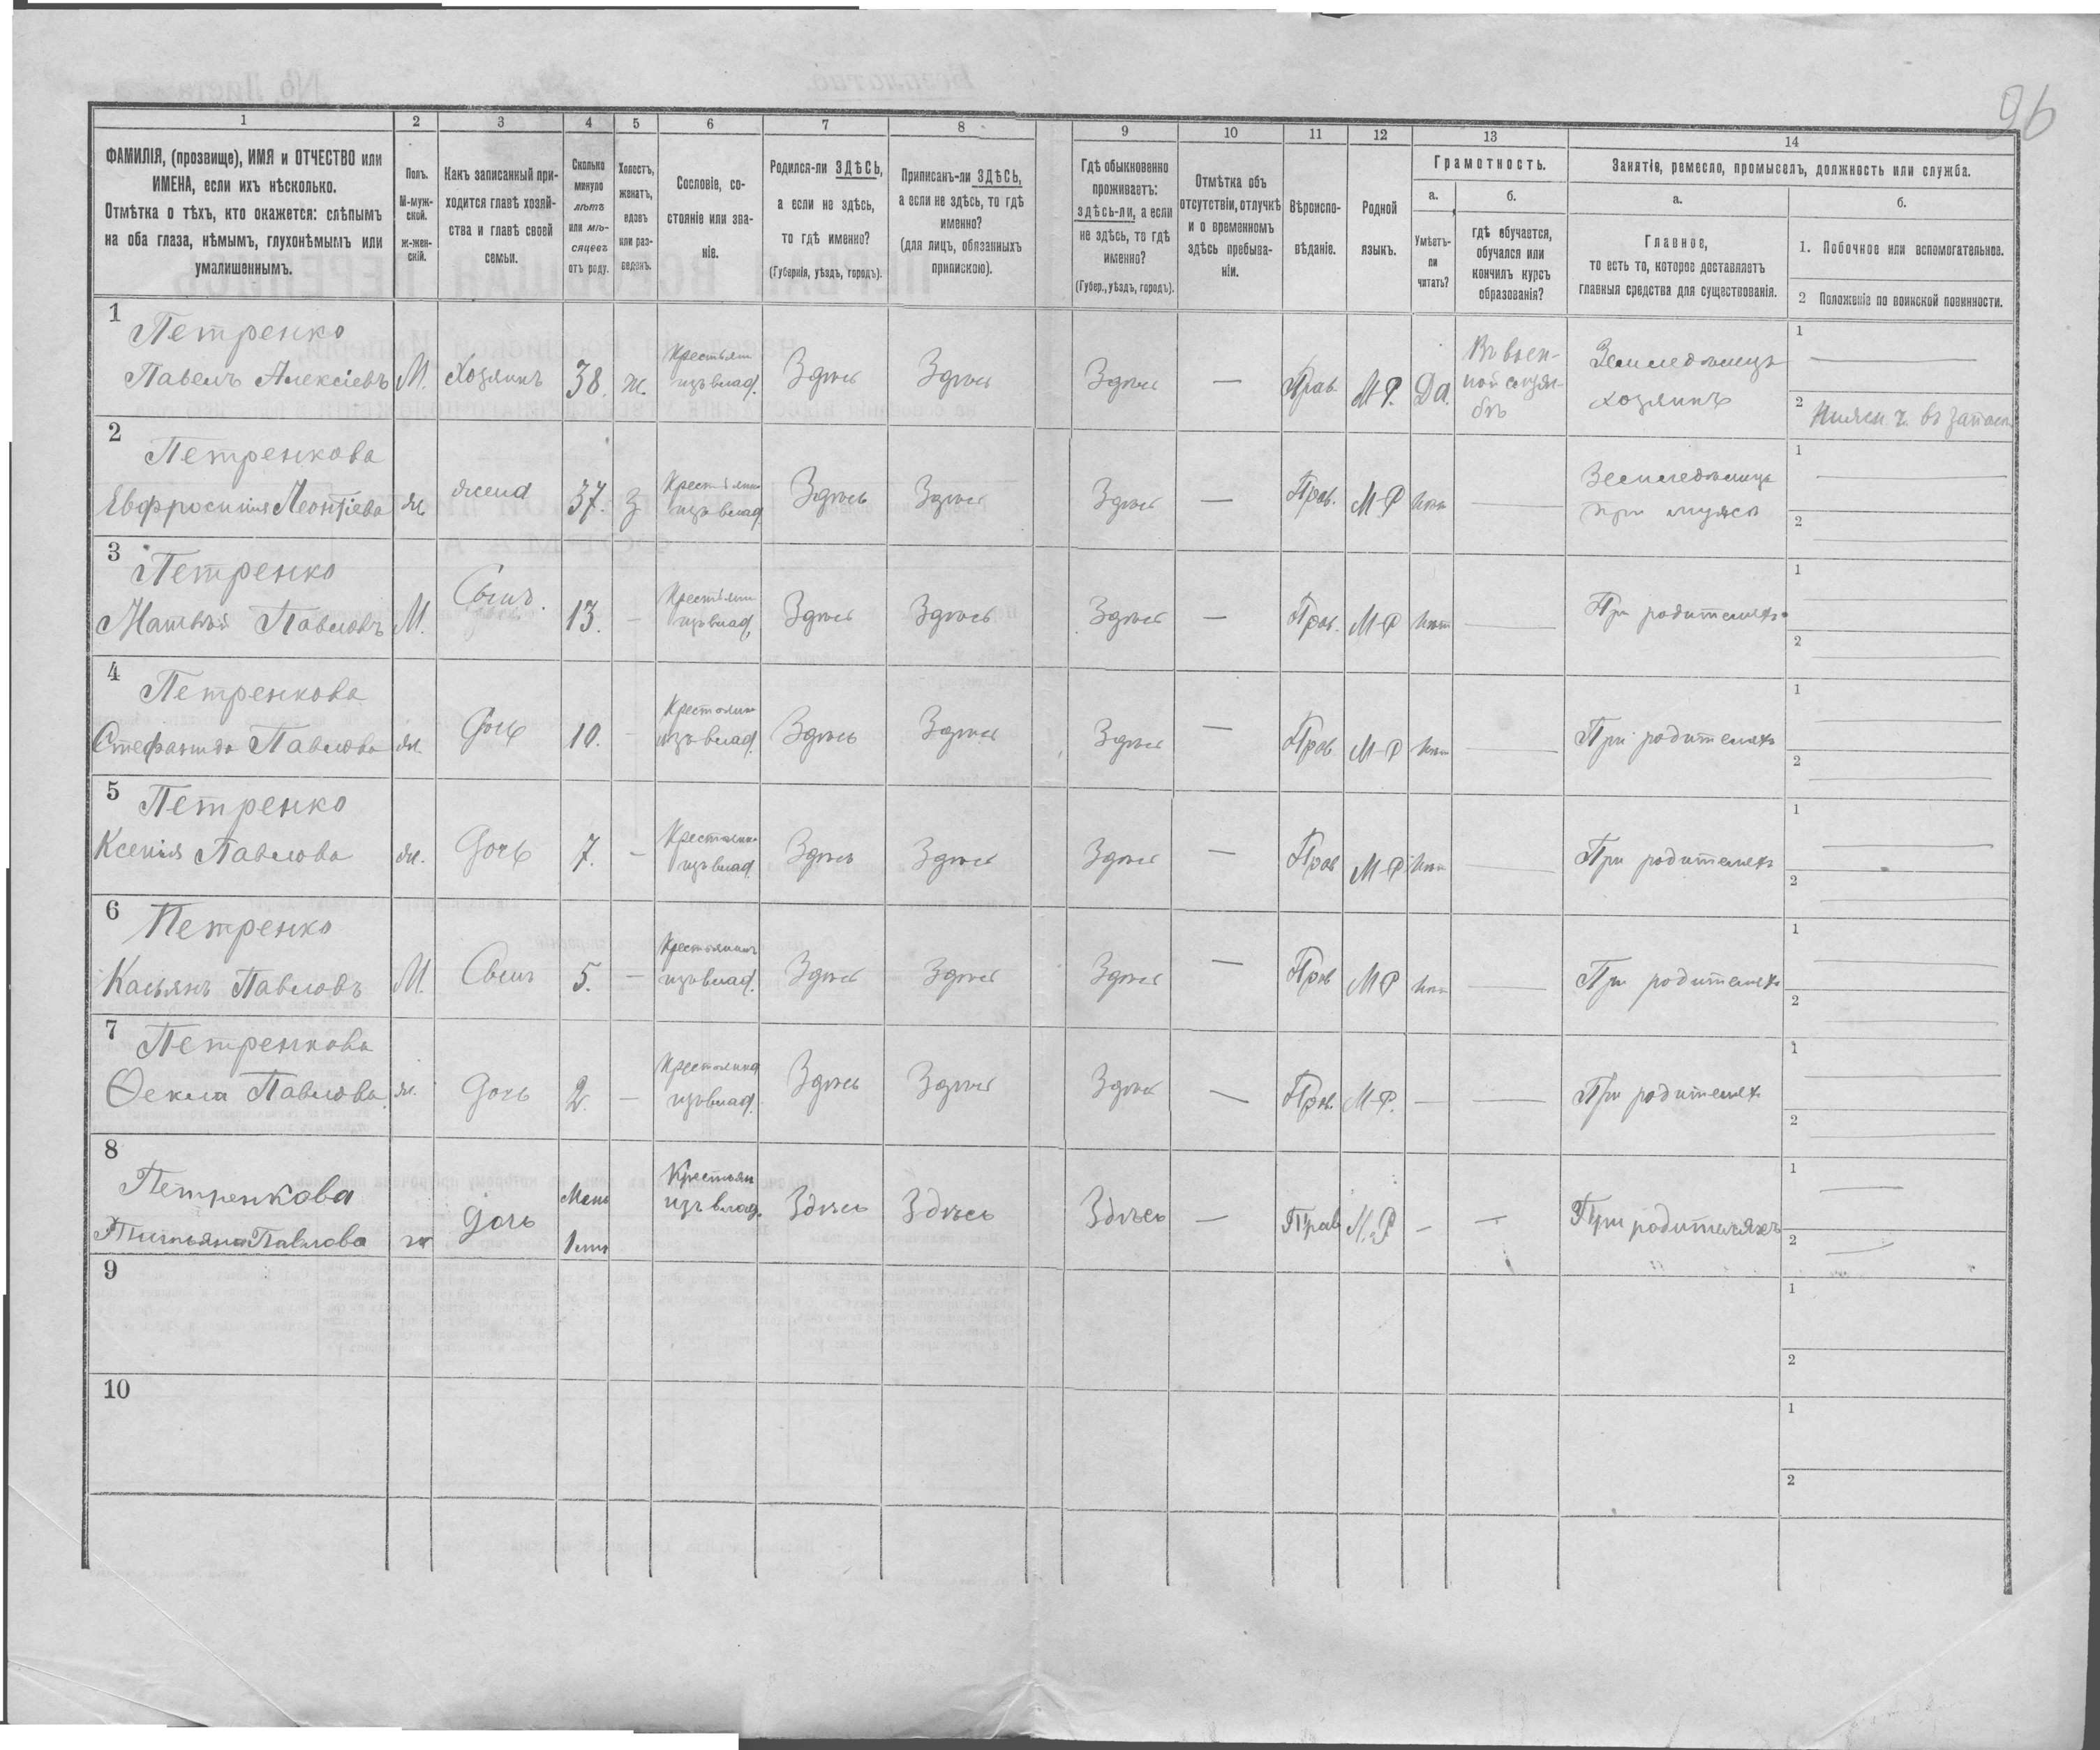 96
1
2
3
4
5
6
7
8
9
10
11
12
13
14
ФАМИЛІЯ, (прозвище), ИМЯ и ОТЧЕСТВО или
ИМЕНА, если ихъ нѣсколько.
Отмѣтка о тѣхъ, кто окажется: слѣпымъ
на оба глаза, нѣмымъ, глухонѣмымъ или
умалишеннымъ.
Полъ.
М-муж-
ской.
ж-жен-
скій.
Какъ записанный при-
ходится главѣ хозяй-
ства и главѣ своей
семьи.
Сколько
минуло
лѣтъ
или мѣ-
сяцевъ
отъ роду.
Холостъ,
женатъ,
вдовъ
или раз-
веденъ.
Сословіе, со-
стояніе или зва-
ніе.
Родился-ли ЗДѢСЬ,
а если не здѣсь,
то гдѣ именно?
(Губернія, уѣздъ, городъ).
Приписанъ-ли ЗДѢСЬ,
а если не здѣсь, то гдѣ
именно?
(для лицъ, обязанныхъ
припискою).
Гдѣ обыкновенно
проживаетъ:
здѣсь-ли, а если
не здѣсь, то гдѣ
именно?
(Губер., уѣздъ, городъ).
Отмѣтка объ
отсутствіи, отлучкѣ
и о временномъ
здѣсь пребыва-
ніи.
Вѣроиспо-
вѣданіе.
Родной
языкъ.
Грамотность.
а.
Умѣетъ-
ли
читать?
б.
гдѣ обучается,
обучался или
кончилъ курсъ
образованія?
Занятіе, ремесло, промыселъ, должность или служба.
а.
Главное,
то есть то, которое доставляетъ
главныя средства для существованія.
б.
1. Побочное или вспомогательное.
2 Положеніе по воинской повинности.
1
Петренко
Павелъ Алексіевъ М. Хозяинъ 38. ж. Крестьян изъ влад. Здѣсь Здѣсь Здѣсь — Прав. М-Р. Да.
Въ воен-
ной служ-
бѣ
Земледѣлецъ
хозяинъ
1
2 Нижн. ч. въ запасѣ
2
Петренкова
Евфросинія Леонтіева ж. жена 37. з. Крестьян изъ влад. Здѣсь Здѣсь Здѣсь — Прав. М-Р нѣт —
Земледѣлица
при мужѣ
1
2
3
Петренко
Матвѣй Павловъ М. Сынъ. 13. — Крестьян изъ влад. Здѣсь Здѣсь Здѣсь — Прав. М-Р нѣт — При родителяхъ
1
2
4
Петренкова
Стефанида Павлова ж. Дочь 10. — Крестьян изъ влад. Здѣсь Здѣсь Здѣсь — Прав. М-Р нѣт — При родителяхъ
1
2
5
Петренко
Ксенія Павлова ж. Дочь 7. — Крестьян изъ влад. Здѣсь Здѣсь Здѣсь — Прав М-Р нѣт — При родителяхъ
1
2
6
Петренко
Касьянъ Павловъ М. Сынъ 5. — Крестьянинъ изъ влад. Здѣсь Здѣсь Здѣсь — Прав М-Р нѣт — При родителяхъ
1
2
7
Петренкова
Ѳекла Павлова ж. Дочь 2. — Крестьянка изъ влад. Здѣсь Здѣсь Здѣсь — Прав. М-Р. — — При родителях
1
2
8
Петренкова
Татьяна Павлова ж Дочь Мень 1 лѣт Крестьян изъ влад. Здѣсь Здѣсь Здѣсь — Прав М.Р — — При родителяхъ
1
2
9
1
2
10
1
2